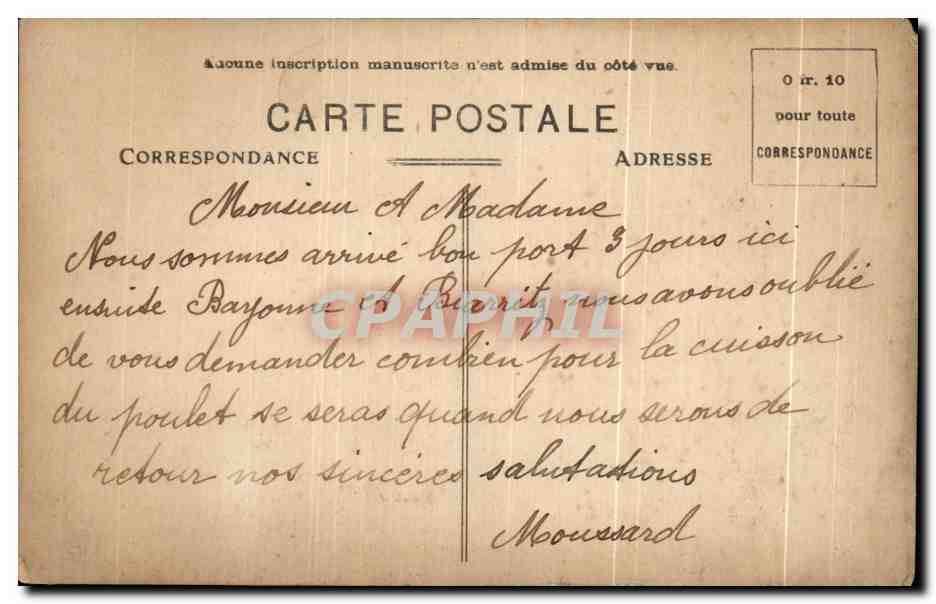 Aucune inscription manuscrite n'est admise du côté vue.
0 fr. 10
pour toute
CORRESPONDANCE
CARTE POSTALE
CORRESPONDANCE
ADRESSE
Monsieur et Madame
Nous sommes arrivé bon port 3 jours ici
ensuite Bayonne et Biarritz, nous avons oublié
de vous demander combien pour la cuisson
du poulet se seras quand nous serons de
retour nos sincéres salutations
Moussard
CPAPHIL